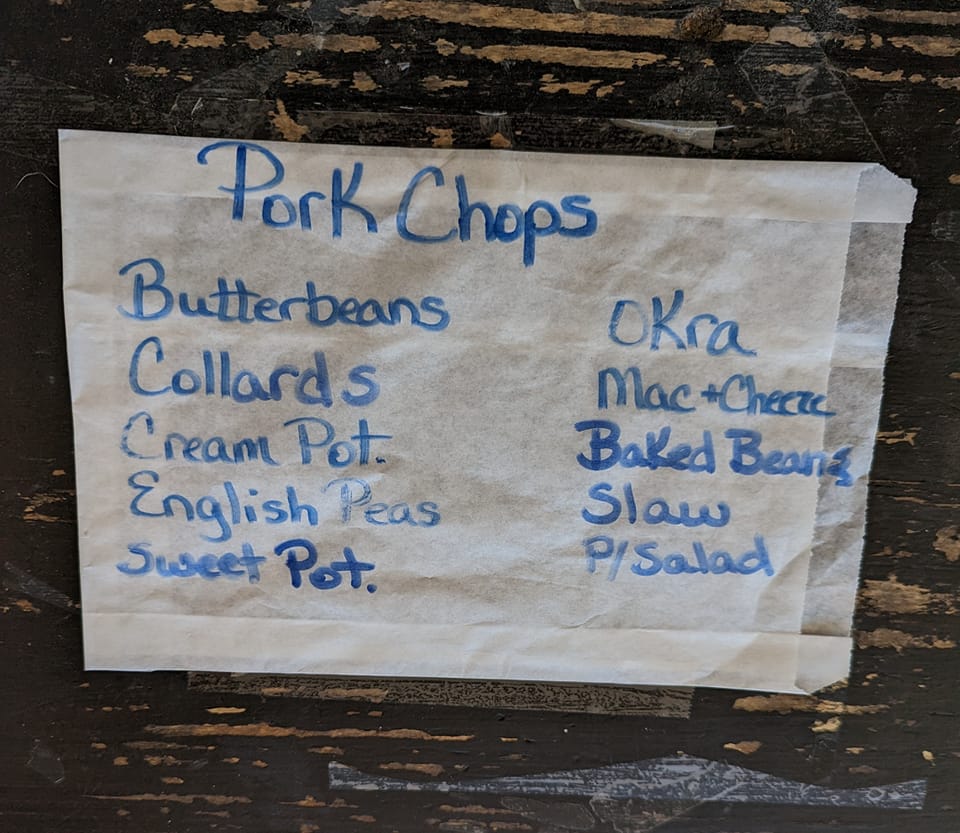 Pork Chops
Butterbeans
Collards
Cream Pot.
English Peas
Sweet Pot.
Okra
Mac + Cheeze
Baked Beans
Slaw
P/Salad